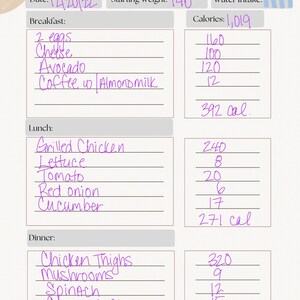 Starting Weight: 140
Water Intake:
Breakfast:
Calories: 1,019
2 eggs 160
Cheese 100
Avocado 120
Coffee w/ Almondmilk 12
392 cal
Lunch:
Grilled Chicken 240
Lettuce 8
Tomato 20
Red onion 6
Cucumber 17
271 cal
Dinner:
Chicken Thighs 320
Mushrooms 9
Spinach 12